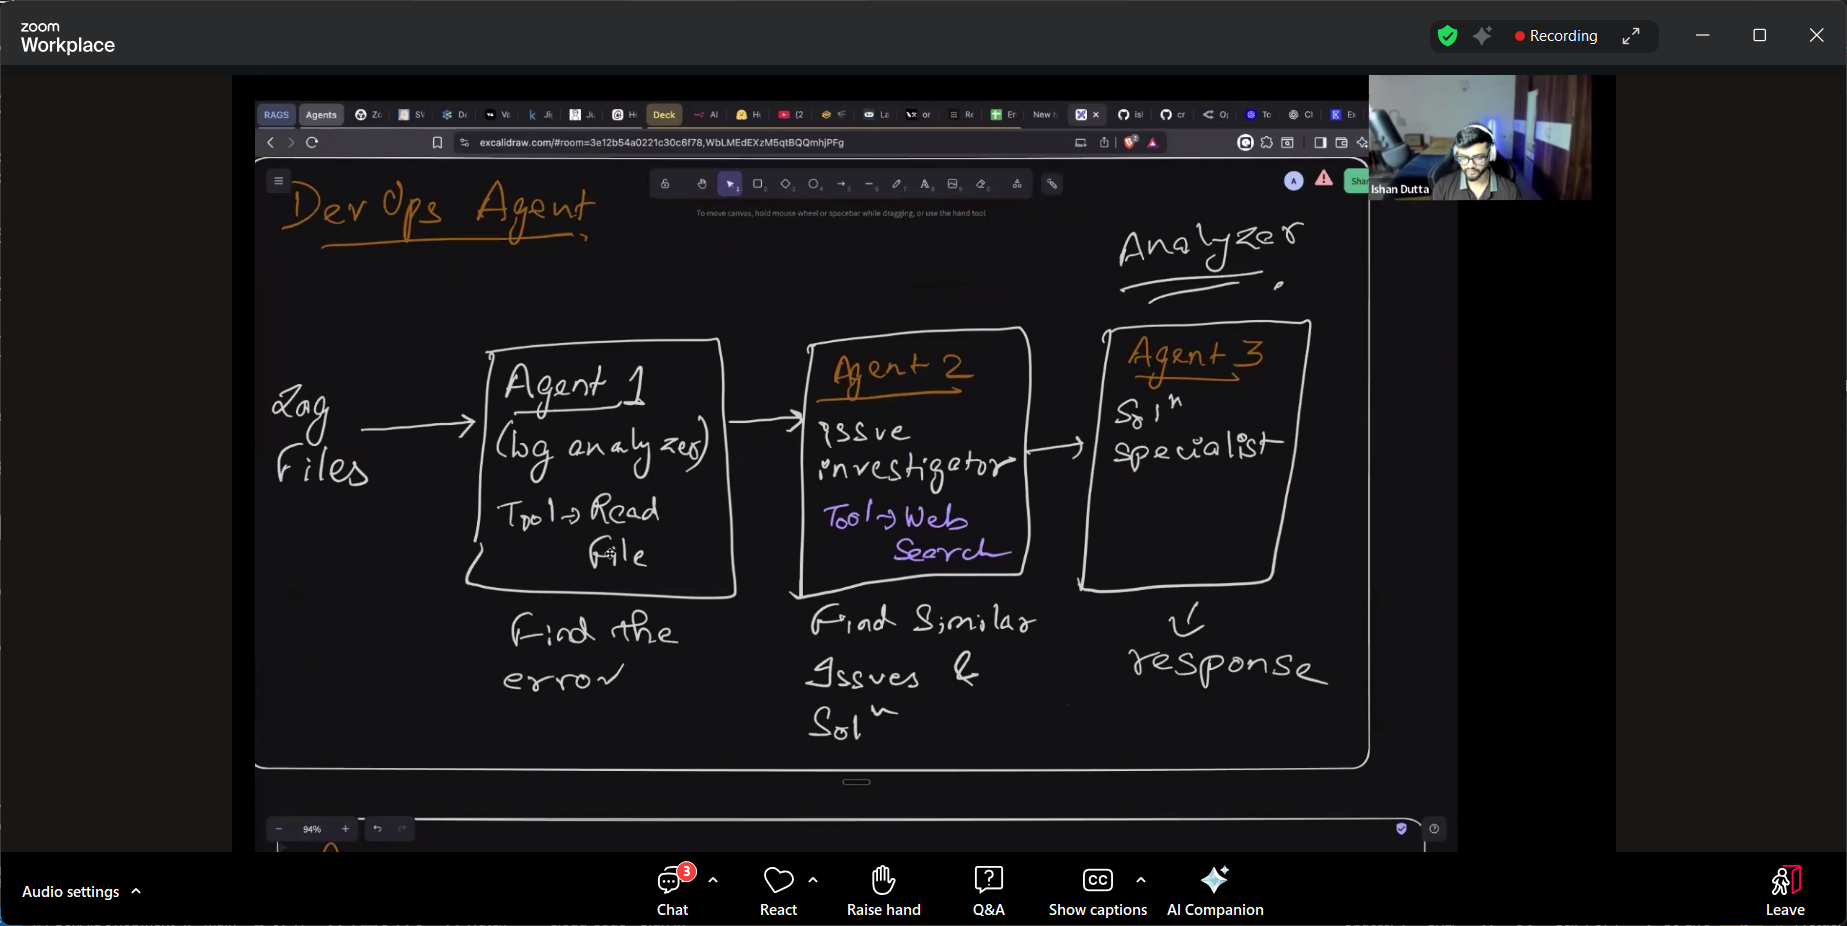 zoom
Workplace
Recording
RAGS
Agents
Deck
excalidraw.com/#room=3e12b54a0221c30c6f78,WbLMEdEXzM5qtBQQmhjPFg
To move canvas, hold mouse wheel or spacebar while dragging, or use the hand tool
A
Ishan Dutta
DevOps Agent
Analyzer
Log
Files
Agent 1
(log analyzer)
Tool → Read
File
Find the
error
Agent 2
issue
investigator
Tool → Web
Search
Find Similar
Issues &
Solⁿ
Agent 3
Solⁿ
specialist
response
94%
Audio settings
3
Chat
React
Raise hand
Q&A
CC
Show captions
AI Companion
Leave